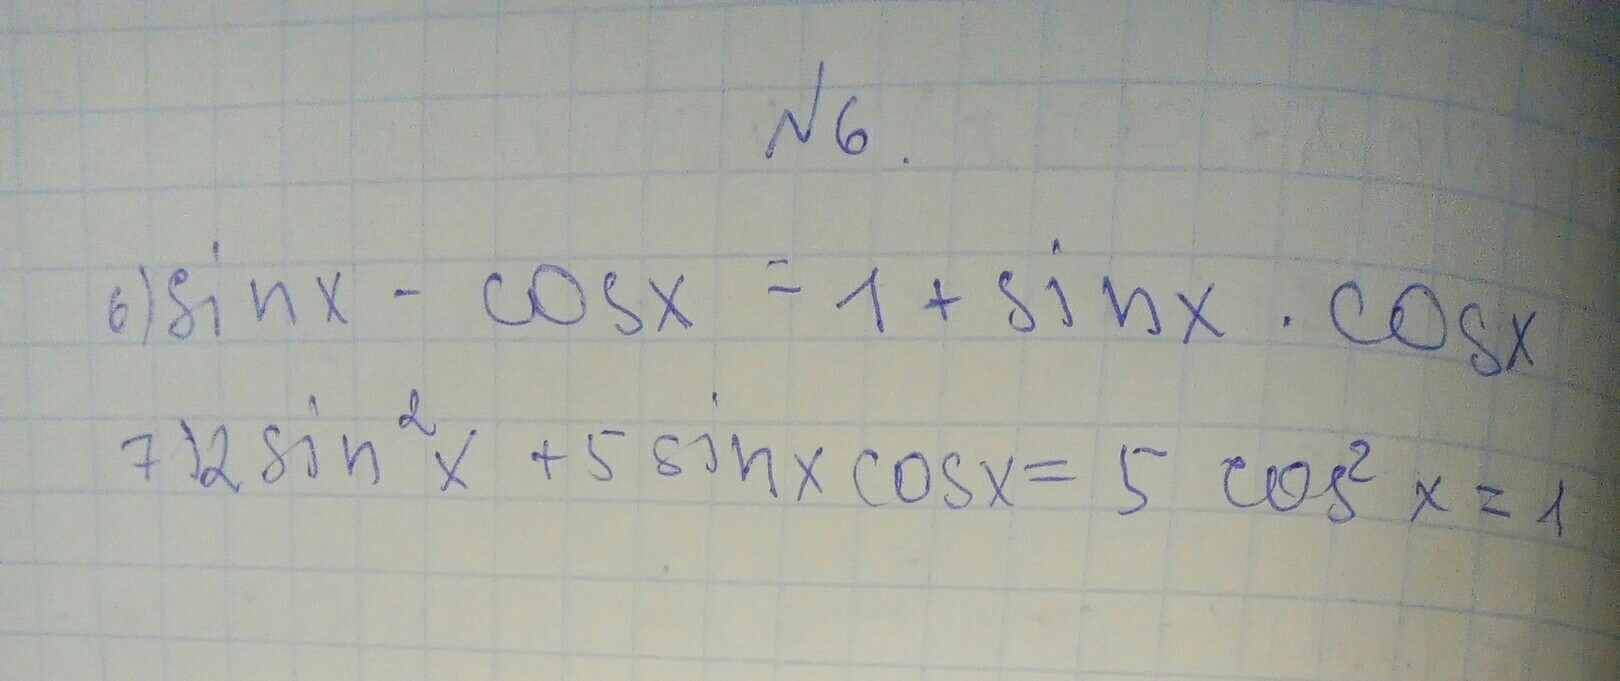 N6.
6) sinx - cosx = 1 + sinx · cosx
7) 2 sin²x + 5 sinx cosx = 5 cos² x = 1